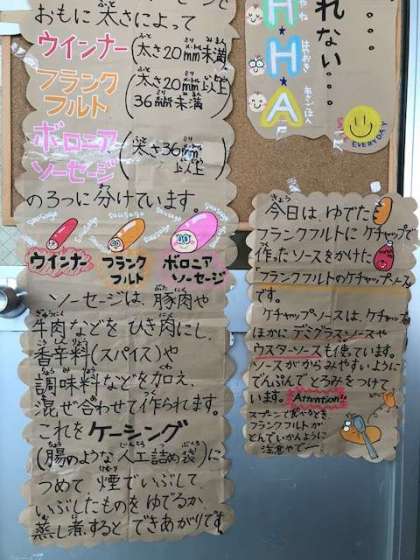 おもに太さによって
ウインナー(太さ20mm未満)
フランクフルト(太さ20mm以上36mm未満)
ボロニアソーセージ(太さ36mm以上)
の3つに分けています。
ウインナー
フランクフルト
ボロニアソーセージ
ソーセージは、豚肉や
牛肉などをひき肉にし、
香辛料(スパイス)や
調味料などを加え、
混ぜ合わせて作られます。
これをケーシング
(腸のような人工詰め袋)に
つめて煙でいぶして
いぶしたものをゆでるか
蒸し煮するとできあがりです。
れない....
H
H★A
はやおき
あさごはん
EVERYDAY
今日は、ゆでた
フランクフルトにケチャップで
作ったソースをかけた
「フランクフルトのケチャップソース」
です。
ケチャップソースは、ケチャップの
ほかにデミグラスソースや
ウスターソースも使っています。
ソースがからみやすいように
でんぷんでとろみをつけて
います。
Attention!!
スプーンで食べるとき
フランクフルトが
とんでいかんように
注意や～